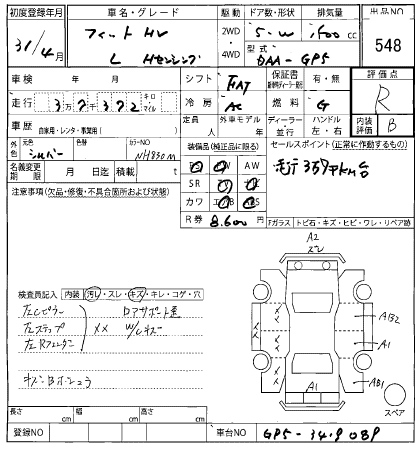 初度登録年月 車名・グレード 駆動 ドア数・形状 排気量 出品NO
31/4月 フィット HV 2WD・4WD 5・W 1500cc 548
L Hセンシング 型式 DAA-GP5
車検 年 月 シフト FAT 保証書 有・無 評価点
走行 3万7372 キロ・マイル 冷房 AC 燃料 G R
車歴 自家用・レンタ・事業用( ) 定員 人 外車モデル 年 ディーラー 並行 ハンドル 左・右 内装評価 B
色 元色 シルバー カラーNO NH830M 装備品(純正品に限る) セールスポイント(正常に作動するもの)
名義変更期限 月 日迄 積載 t AW
注意事項(欠品・修復・不具合箇所および状態) SR
カワ
R券 8,600
Fガラス トビ石・キズ・ヒビ・ワレ・リペア跡
A2
ズレ
検査員記入 内装 汚レ・スレ・キズ・キレ・コゲ・穴
左Cピラー
左ステップ XX
左Rフェンダー
AB2
A1
AB1
A1
スペア
長さ cm 幅 cm 高さ cm
登録NO 車台NO GP5-3419089